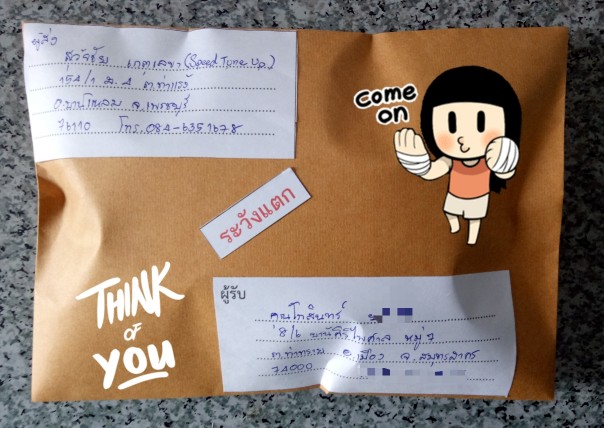 ผู้ส่ง
สุวัจชัย เกตุเลขา (Speed Tune Up.)
154/1 ม.4 ต.ท่าแร้ง
อ.บ้านแหลม จ.เพชรบุรี
76110 โทร. 084-6351678
come
on
ระวังแตก
THINK
OF
YOU
ผู้รับ
คุณโกสินทร์
8/6 หมู่ 7
ต.ท่าทราย อ.เมือง จ.สมุทรสาคร
74000